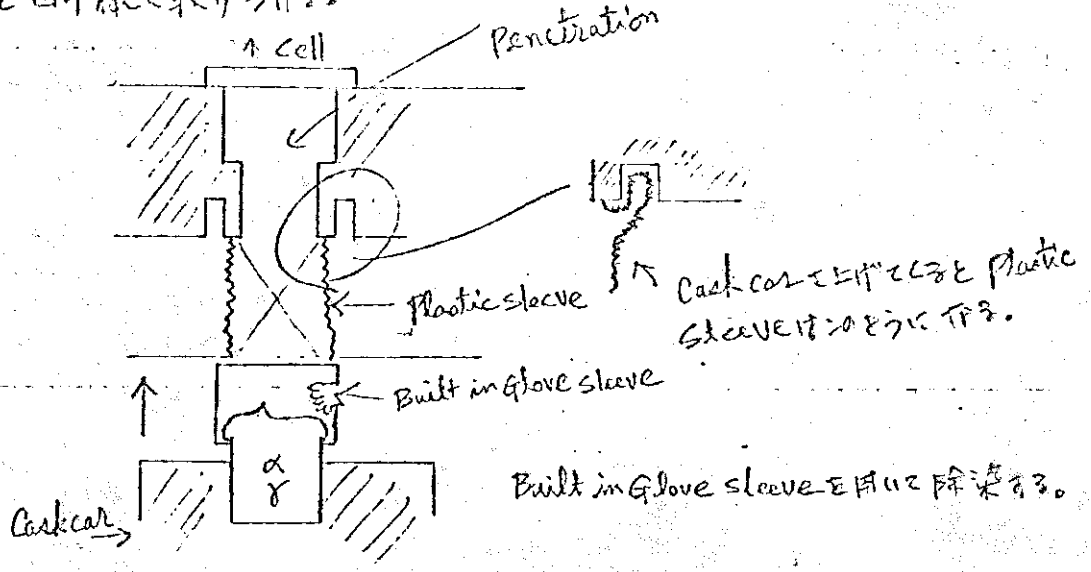 と同様に取り扱する。
↑ Cell
Penetration
Plastic sleeve
Cask carで上げてくると Plastic
sleeveはこのように なる。
Built in Glove sleeve
α
γ
Built in Glove sleeveを用いて除染する。
Cask car